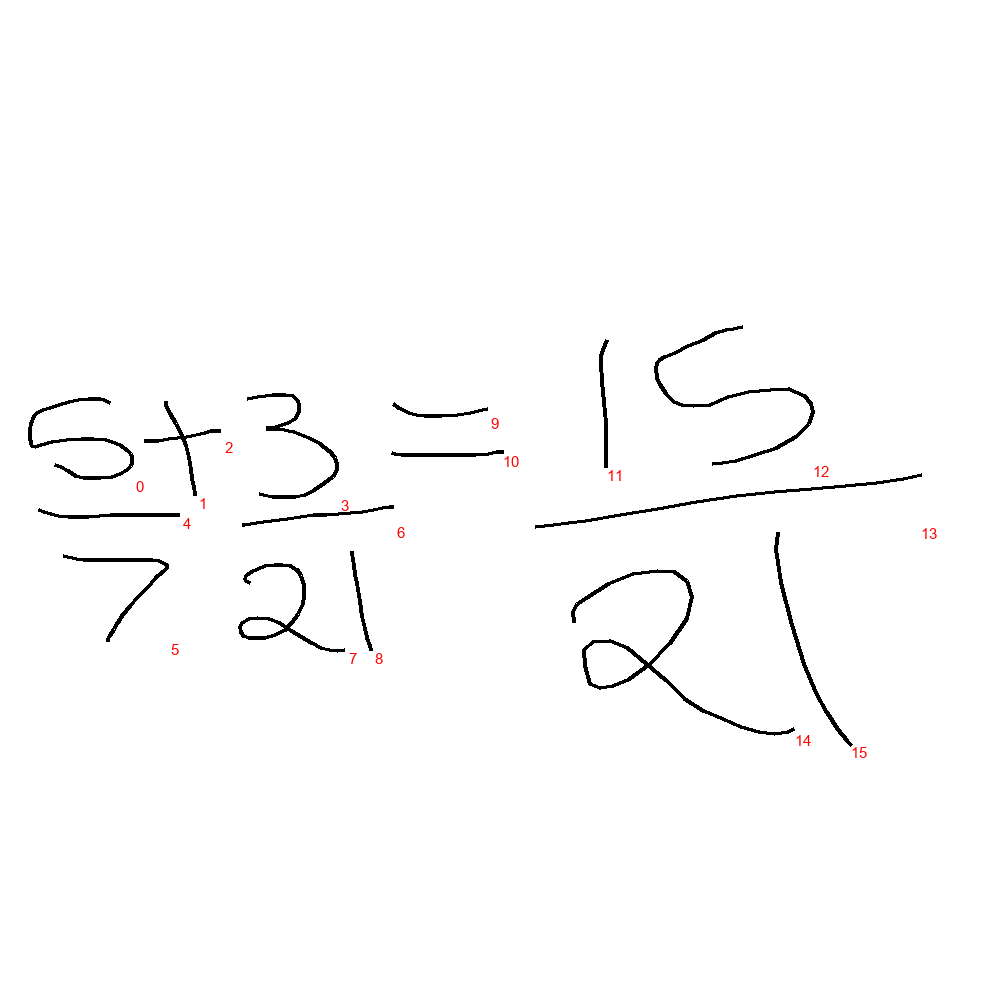 5/7 + 3/21 = 15/21
0 1 2 3 4 5 6 7 8 9 10 11 12 13 14 15